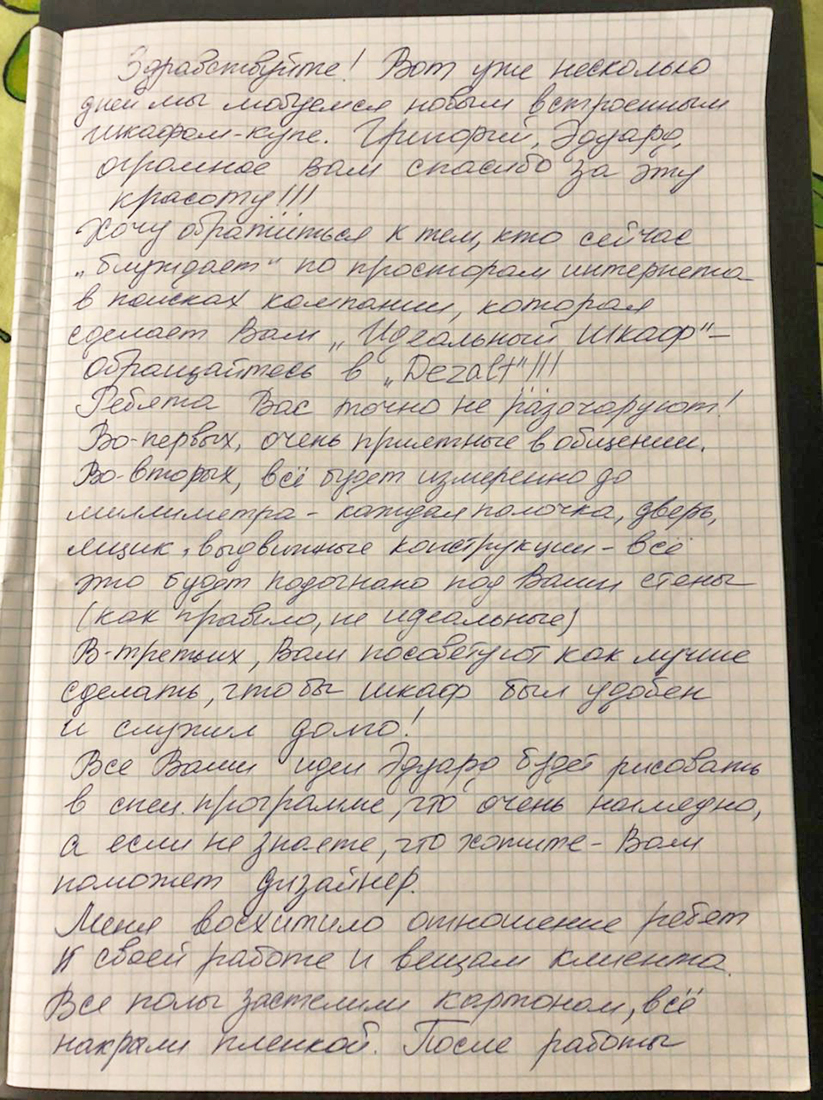 Здравствуйте! Вот уже несколько
дней мы любуемся новым встроенным
шкафом-купе. Григорий, Эдуард,
огромное Вам спасибо за эту
красоту!!!
Хочу обратиться к тем, кто сейчас
„блуждает“ по просторам интернета
в поисках компании, которая
сделает Вам „Идеальный шкаф“ –
обращайтесь в „Dezalt“!!!
Ребята Вас точно не разочаруют!
Во-первых, очень приятные в общении.
Во-вторых, всё будет измеренно до
миллиметра - каждая полочка, дверь,
ящик, выдвижные конструкции - всё
это будет подогнано под Ваши стены
(как правило, не идеальные)
В-третьих, Вам посоветуют как лучше
сделать, чтобы шкаф был удобен
и служил долго!
Все Ваши идеи Эдуард будет рисовать
в спец. программе, что очень наглядно,
а если не знаете, что хотите - Вам
поможет дизайнер.
Меня восхитило отношение ребят
к своей работе и вещам клиента.
Все полы застелили картоном, всё
накрыли пленкой. После работы